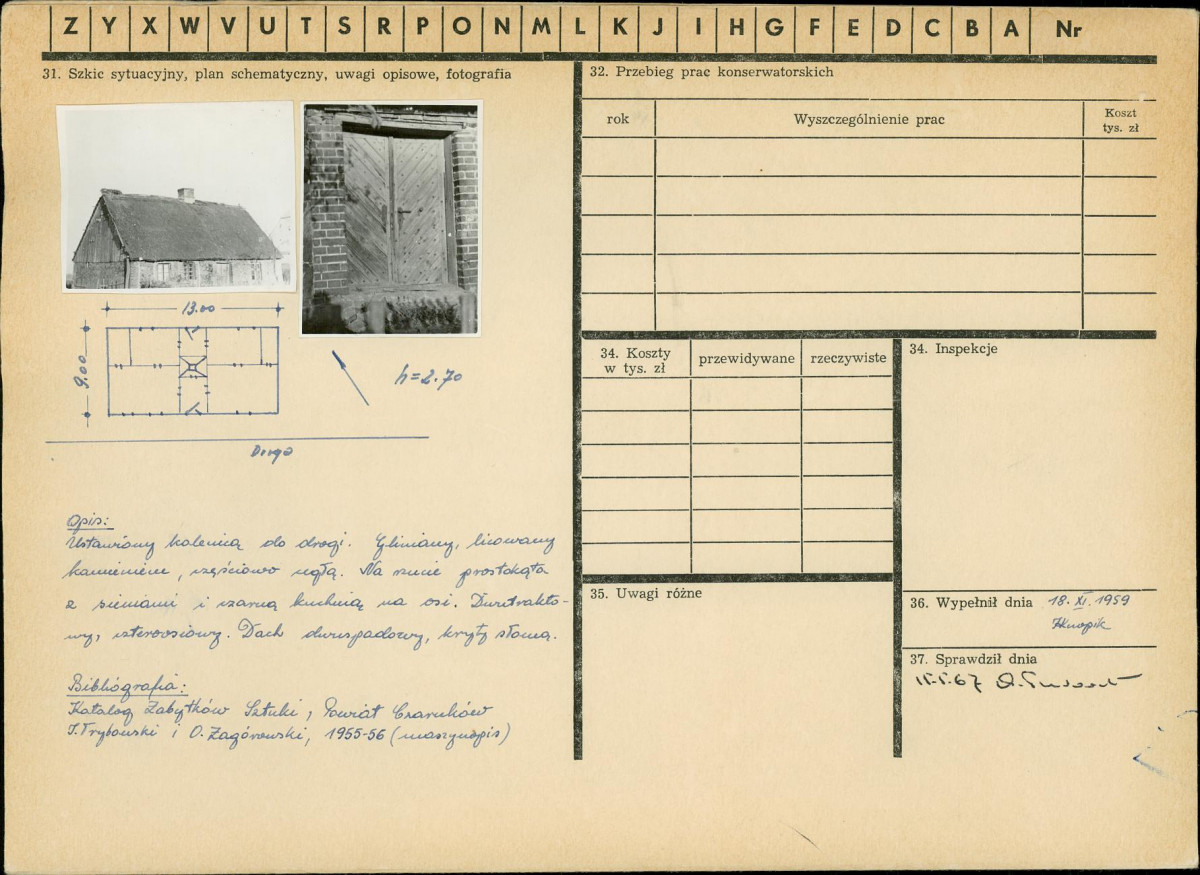 Z Y X W V U T S R P O N M L K J I H G F E D C B A Nr
31. Szkic sytuacyjny, plan schematyczny, uwagi opisowe, fotografia
13.00
9.00
h=2.70
Droga
Opis:
Ustawiony kalenicą do drogi. Gliniany, licowany
kamieniem, częściowo cegłą. Na rzucie prostokąta
z sieniami i czarną kuchnią na osi. Dwutrakto-
wy, czteroosiowy. Dach dwuspadowy, kryty słomą.
Bibliografia:
Katalog Zabytków Sztuki, Powiat Czarnków
T. Trybowski i O. Zagórowski, 1955-56 (maszynopis)
32. Przebieg prac konserwatorskich
rok
Wyszczególnienie prac
Koszt
tys. zł
34. Koszty
w tys. zł
przewidywane
rzeczywiste
34. Inspekcje
35. Uwagi różne
36. Wypełnił dnia 18. XI. 1959
37. Sprawdził dnia